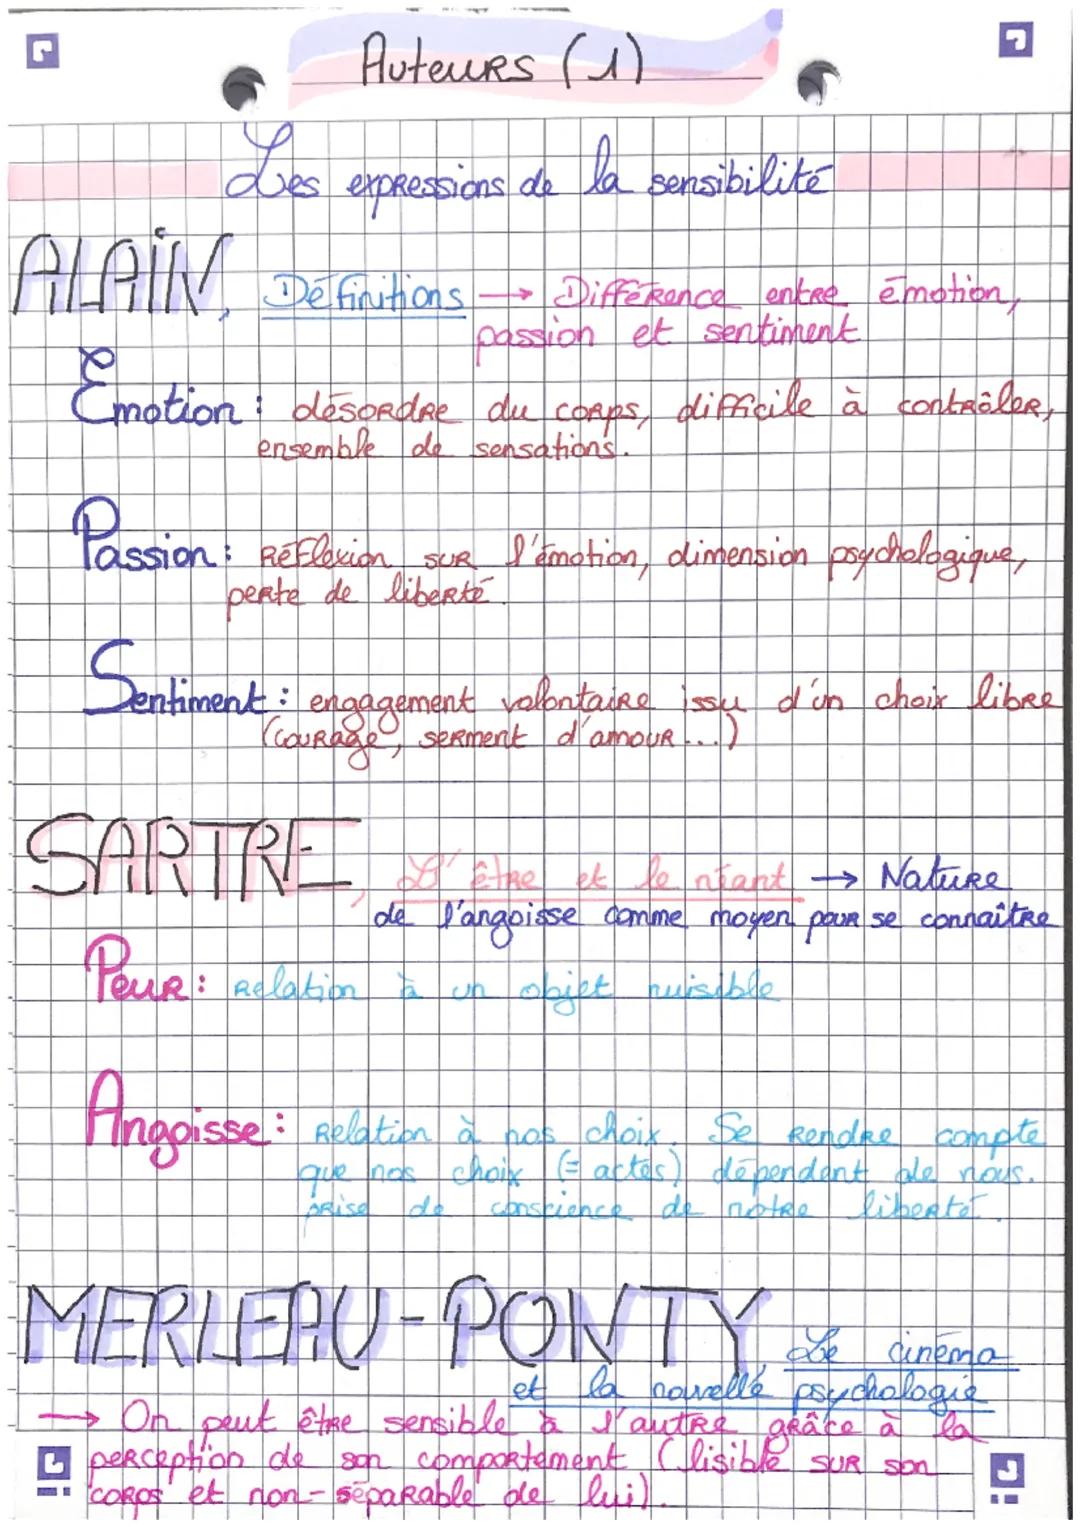 Auteurs (1)
Les expressions de la sensibilité
ALAIN, Définitions → Différence entre émotion,
passion et sentiment
Émotion : désordre du corps, difficile à contrôler,
ensemble de sensations.
Passion : Réflexion sur l'émotion, dimension psychologique,
perte de liberté.
Sentiment : engagement volontaire issu d'un choix libre
(courage, serment d'amour...)
SARTRE, L'être et le néant → Nature
de l'angoisse comme moyen pour se connaître
Peur : Relation à un objet nuisible
Angoisse : Relation à nos choix. Se rendre compte
que nos choix (= actes) dépendent de nous.
prise de conscience de notre liberté.
MERLEAU-PONTY, Le cinéma
et la nouvelle psychologie
→ On peut être sensible à l'autre grâce à la
perception de son comportement (lisible sur son
corps et non-séparable de lui).